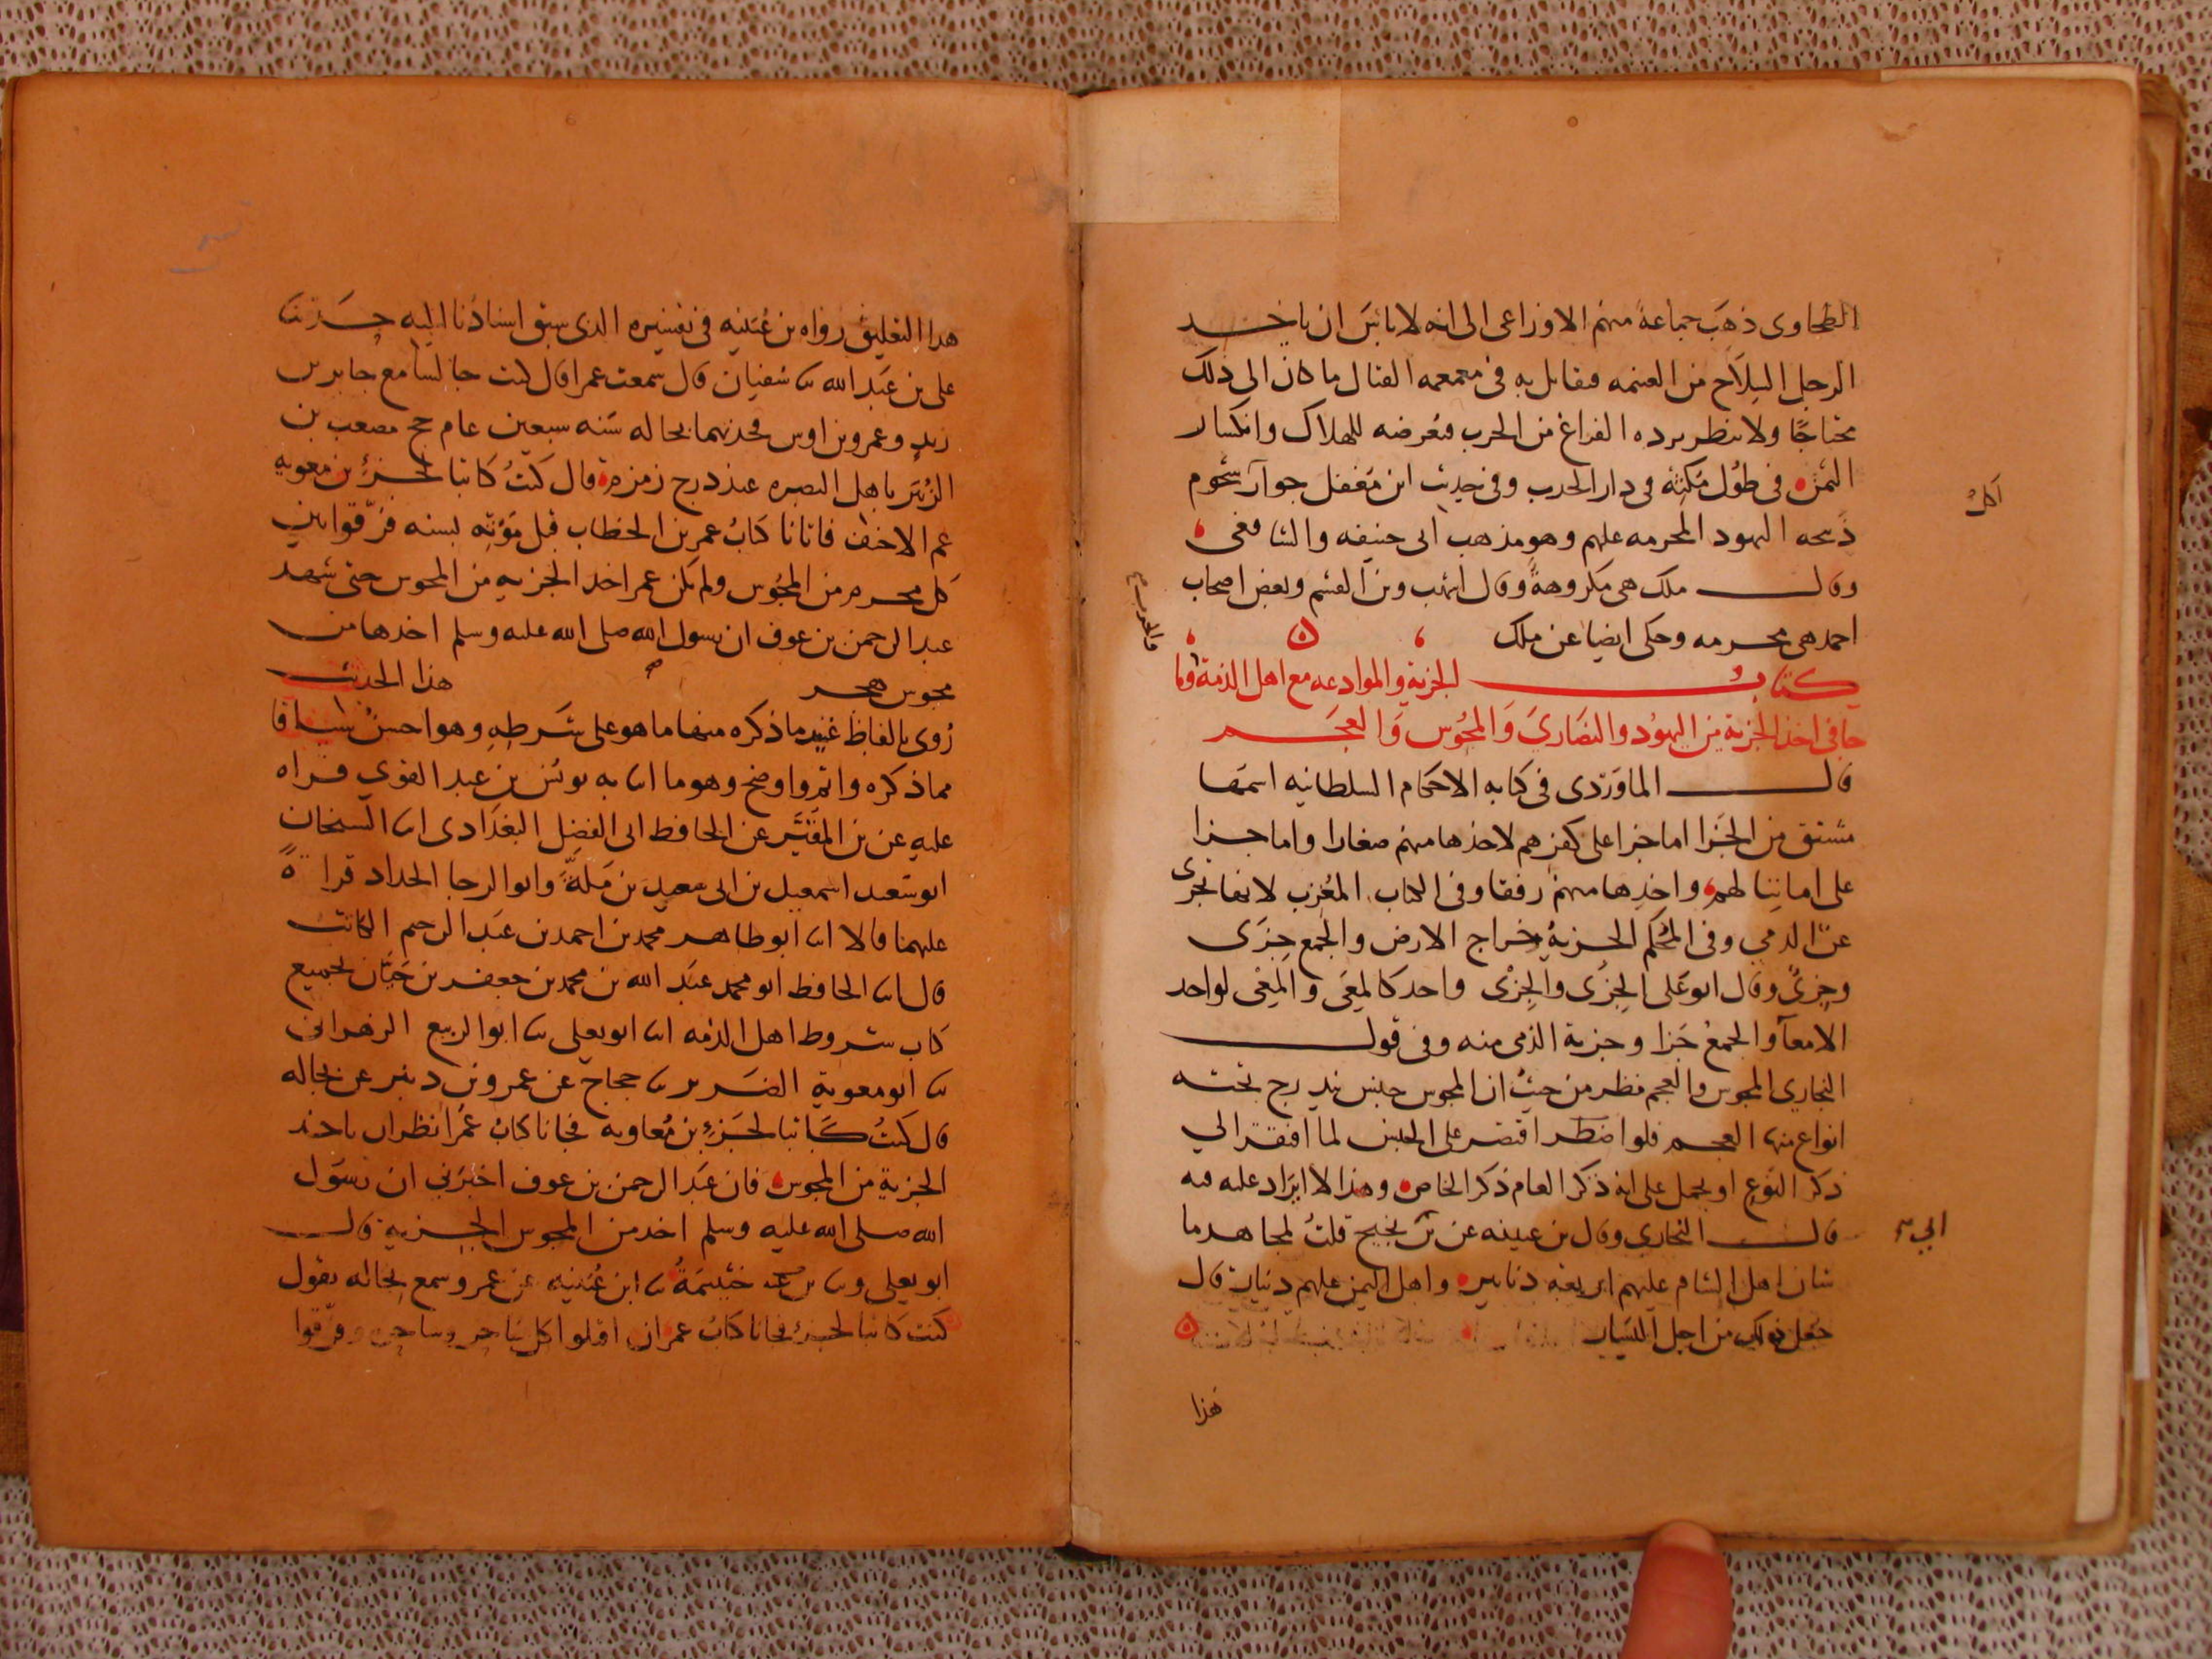 الطحاوى ذهب جماعة منهم الاوزاعى الى انه لا باس ان ياخــد
الرجل السلاح من الغنيمه فيقاتل به فى معمعه القتال ما كان الى ذلك
محتاجًا ولا ينتظر برده الفراغ من الحرب فتعرضه للهلاك وانكسار
الثمن فى طول مكثه فى دار الحرب وفى حديث ابن مغفل جواز شحوم
اكل
ذبيحه اليهود المحرمه عليهم وهو مذهب ابى حنيفه والشافعى
وقال ملك هى مكروهة وقال اشهب وبن القسم وبعض اصحاب
احمد هى محرمه وحكى ايضا عن ملك
كتاب الجزية والموادعه مع اهل الذمة وما
جا فى اخذ الجزية من اليهُود والنصَاريَ وَالمجُوس وَالعجَم
قال الماوَردى فى كتابه الاحكام السلطانيه اسمها
مشتق من الجَزا اما جزا على كفرهم لاخذها منهم صغارا واما جزا
على اماننا لهم واخذها منهم رفقا وفى الكتاب المغرب لانها تجزى
عن الذمي وفى المُحكم الجزيةُ خراج الارض والجمع جِزَى
وجِزىً وقال ابو عَلى الجِزَى والجِزْى واحد كالمِعَى والمِعْى لواحد
الامعآ والجمعُ جَزا وجزية الذمى منه وفى قول
البخاري المجوس والعجم نظر من حيثُ ان المجوس جنس يندرج تحته
انواع منها العجم فلو اقتصر على الجنس لما افتقر الي
ذكر النوع او يحمل على انه ذكر العام ذكر الخاص وهذا لا ايراد عليه فيه
قال البخارى وقال بن عيينه عن بن نجيح قلتُ لمجاهد ما
ابي
شان اهل الشام عليهم اربعة دنانير واهل اليمن عليهم دينار قال
جعل ذلك من اجل اليسار
هَذا
هدا التعليق رواه بن عُيَينه فى تفسيره الذى سبق اسنادُنا اليه حــدثنا
على بن عَبد الله ثنا سُفيان قال سمعت عمرا قال كنت جالسا مع جابر بن
زيد وعمرو بن اوس فحدثهما بحاله سَنه سبعين عام حج مصعب بن
الزُبَير باهل البصره عند درج زمزم قال كنتُ كاتبا لجَزءِ بن معويه
عم الاحنف فاتانا كتابُ عمر بن الخطاب قبل مَوْته بسنه فرّقوا بين
كل محرم من المجُوس ولم يكن عمر اخد الجزيه من المجوس حتى شهد
عبد الرحمن بن عوف ان رسول الله صلى الله عليه وسلم اخدها من
مجوس هجر هذا الحديث
رُوى بالفاظ غيِر ما ذكره منها ما هو على شَرطهِ وهو احسنُ سياقا
مما ذكره واتم واوضح وهو ما انا به يونس بن عبد القوي قراه
عليه عن بن المقَيَّر عن الحافظ ابى الفضل البغدَادى انا الشيخان
ابو سَعد اسمعيل بن ابى سعيد بن مَلةَّ وابو الرجا الحداد قراةً
عليهما قالا انا ابو طاهر محمد بن احمد بن عَبد الرحيم الكاتب
قال انا الحافظ ابو محمد عَبد الله بن محمد بن جعفر بن حَيَّان بجميع
كتاب شروط اهل الذمه انا ابو يعلى ثنا ابو الربيع الزهرانى
ثنا ابو معوية الضَرير ثنا حجاج عن عمرو بن دينر عن بجاله
قال كنتُ كاتبا لجَزءِ بن مُعاويه فجانا كتابُ عُمَر انظر ان ياخذ
الجزية من المجوس فان عَبد الرحمن بن عوف اخبَرني ان رسَول
الله صلى الله عليه وسلم اخد من المجوس الجزية قال
ابو يعلى وثنا خَيثمَةُ ثنا ابن عُيَينه عن عمرو سمع بجاله يقول
كنت كاتبا لجَزء فجانا كتابُ عمر ان اقتلوا كل ساحر وساحره وفرّقوا